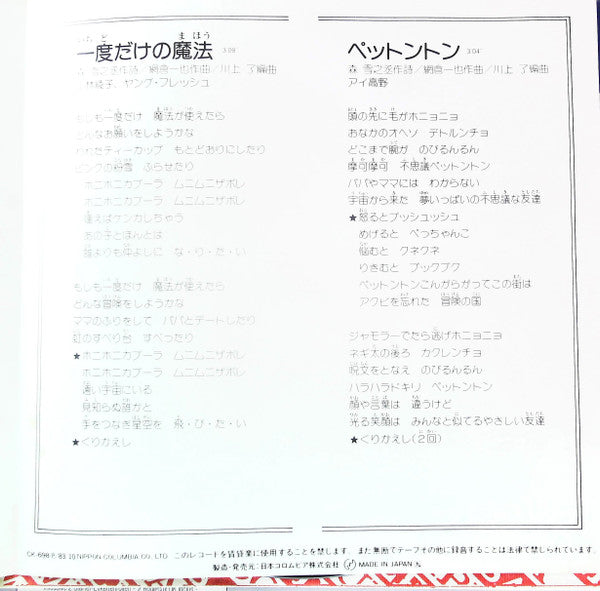 一度だけの魔法 3'09"
森 雪之丞作詩/網倉一也作曲/川上 了編曲
ヤング・フレッシュ
もしも一度だけ 魔法が使えたら
どんなお願いをしようかな
われたティーカップ もとどおりにしたり
ピンクの粉雪 ふらせたり
ホニホニカブーラ ムニムニザボレ
ホニホニカブーラ ムニムニザボレ
逢えばケンカしちゃう
あの子とほんとは
誰よりも仲よしに な・り・た・い
もしも一度だけ 魔法が使えたら
どんな冒険をしようかな
ママのふりをして パパとデートしたり
虹のすべり台 すべったり
★ホニホニカブーラ ムニムニザボレ
ホニホニカブーラ ムニムニザボレ
遠い宇宙にいる
見知らぬ誰かと
手をつなぎ星空を 飛・び・た・い
★くりかえし
ペットントン 3'04"
森 雪之丞作詩/網倉一也作曲/川上 了編曲
アイ高野
頭の先に毛がホニョニョ
おなかのオヘソ デトルンチョ
どこまで腕が のびるんるん
摩可摩可 不思議ペットントン
パパやママには わからない
宇宙から来た 夢いっぱいの不思議な友達
★怒るとプッシュッシュ
めげると ぺっちゃんこ
悩むと クネクネ
りきむと プックプク
ペットントンこんがらがってこの街は
アクビを忘れた 冒険の国
ジャモラーでたら逃げホニョニョ
ネギ太の後ろ カクレンチョ
呪文をとなえ のびるんるん
ハラハラドキリ ペットントン
顔や言葉は 違うけど
光る笑顔は みんなと似てるやさしい友達
★くりかえし(2回)
CK-698 ℗ '83.10 NIPPON COLUMBIA CO., LTD. このレコードを賃貸業に使用することを禁じます。また無断でテープその他に録音することは法律で禁じられています。
製造・発売元:日本コロムビア株式会社 MADE IN JAPAN